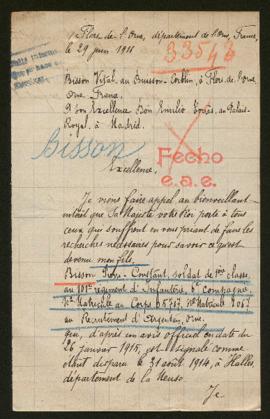 Flers de l'Orne, département de l'Orne, France,
le 29 juin 1918
33543
Bisson Vital, au Buisson-Corblin, à Flers-de-l'Orne
Orne, France.
à Son Excellence Don Emilio, au Palais-
Royal, à Madrid.
Bisson
Fecho
e.a.e.
Excellence,
Je viens faire appel au bienveillant
intérêt que Sa Majesté votre Roi porte à tous
ceux qui souffrent en vous priant de faire les
recherches nécessaires pour savoir ce qu'est
devenu mon fils,
Bisson Constant, soldat de 1ère classe,
au 101e régiment d'Infanterie, 6e compagnie,
No Matricule au Corps 65767, No Matricule
au Recrutement d'Argentan, Orne.
qui, d'après un avis officiel en date du
26 janvier 1915, est signalé comme
étant disparu le 31 août 1914, à Halles,
département de la Meuse
Je